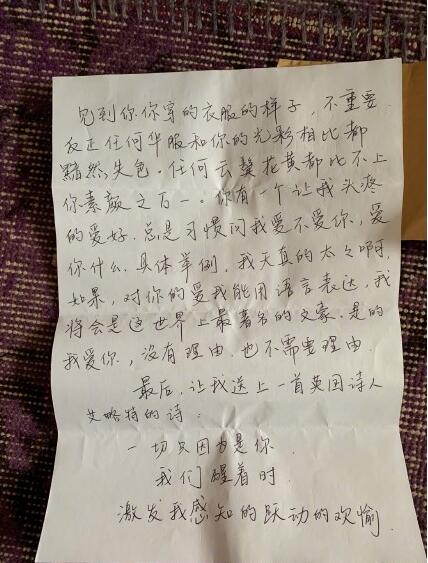 见到你你穿的衣服的样子，不重要
反正任何华服和你的光彩相比都
黯然失色。任何云鬓花黄都比不上
你素颜之百一。你有一个让我头疼
的爱好。总是习惯问我爱不爱你，爱
你什么。具体举例，我天真的太太啊，
如果，对你的爱我能用语言表达，我
将会是这世界上最著名的文豪。是的
我爱你，没有理由。也不需要理由。
最后，让我送上一首英国诗人
艾略特的诗：
一切只因为是你
我们醒着时
激发我感知的跃动的欢愉